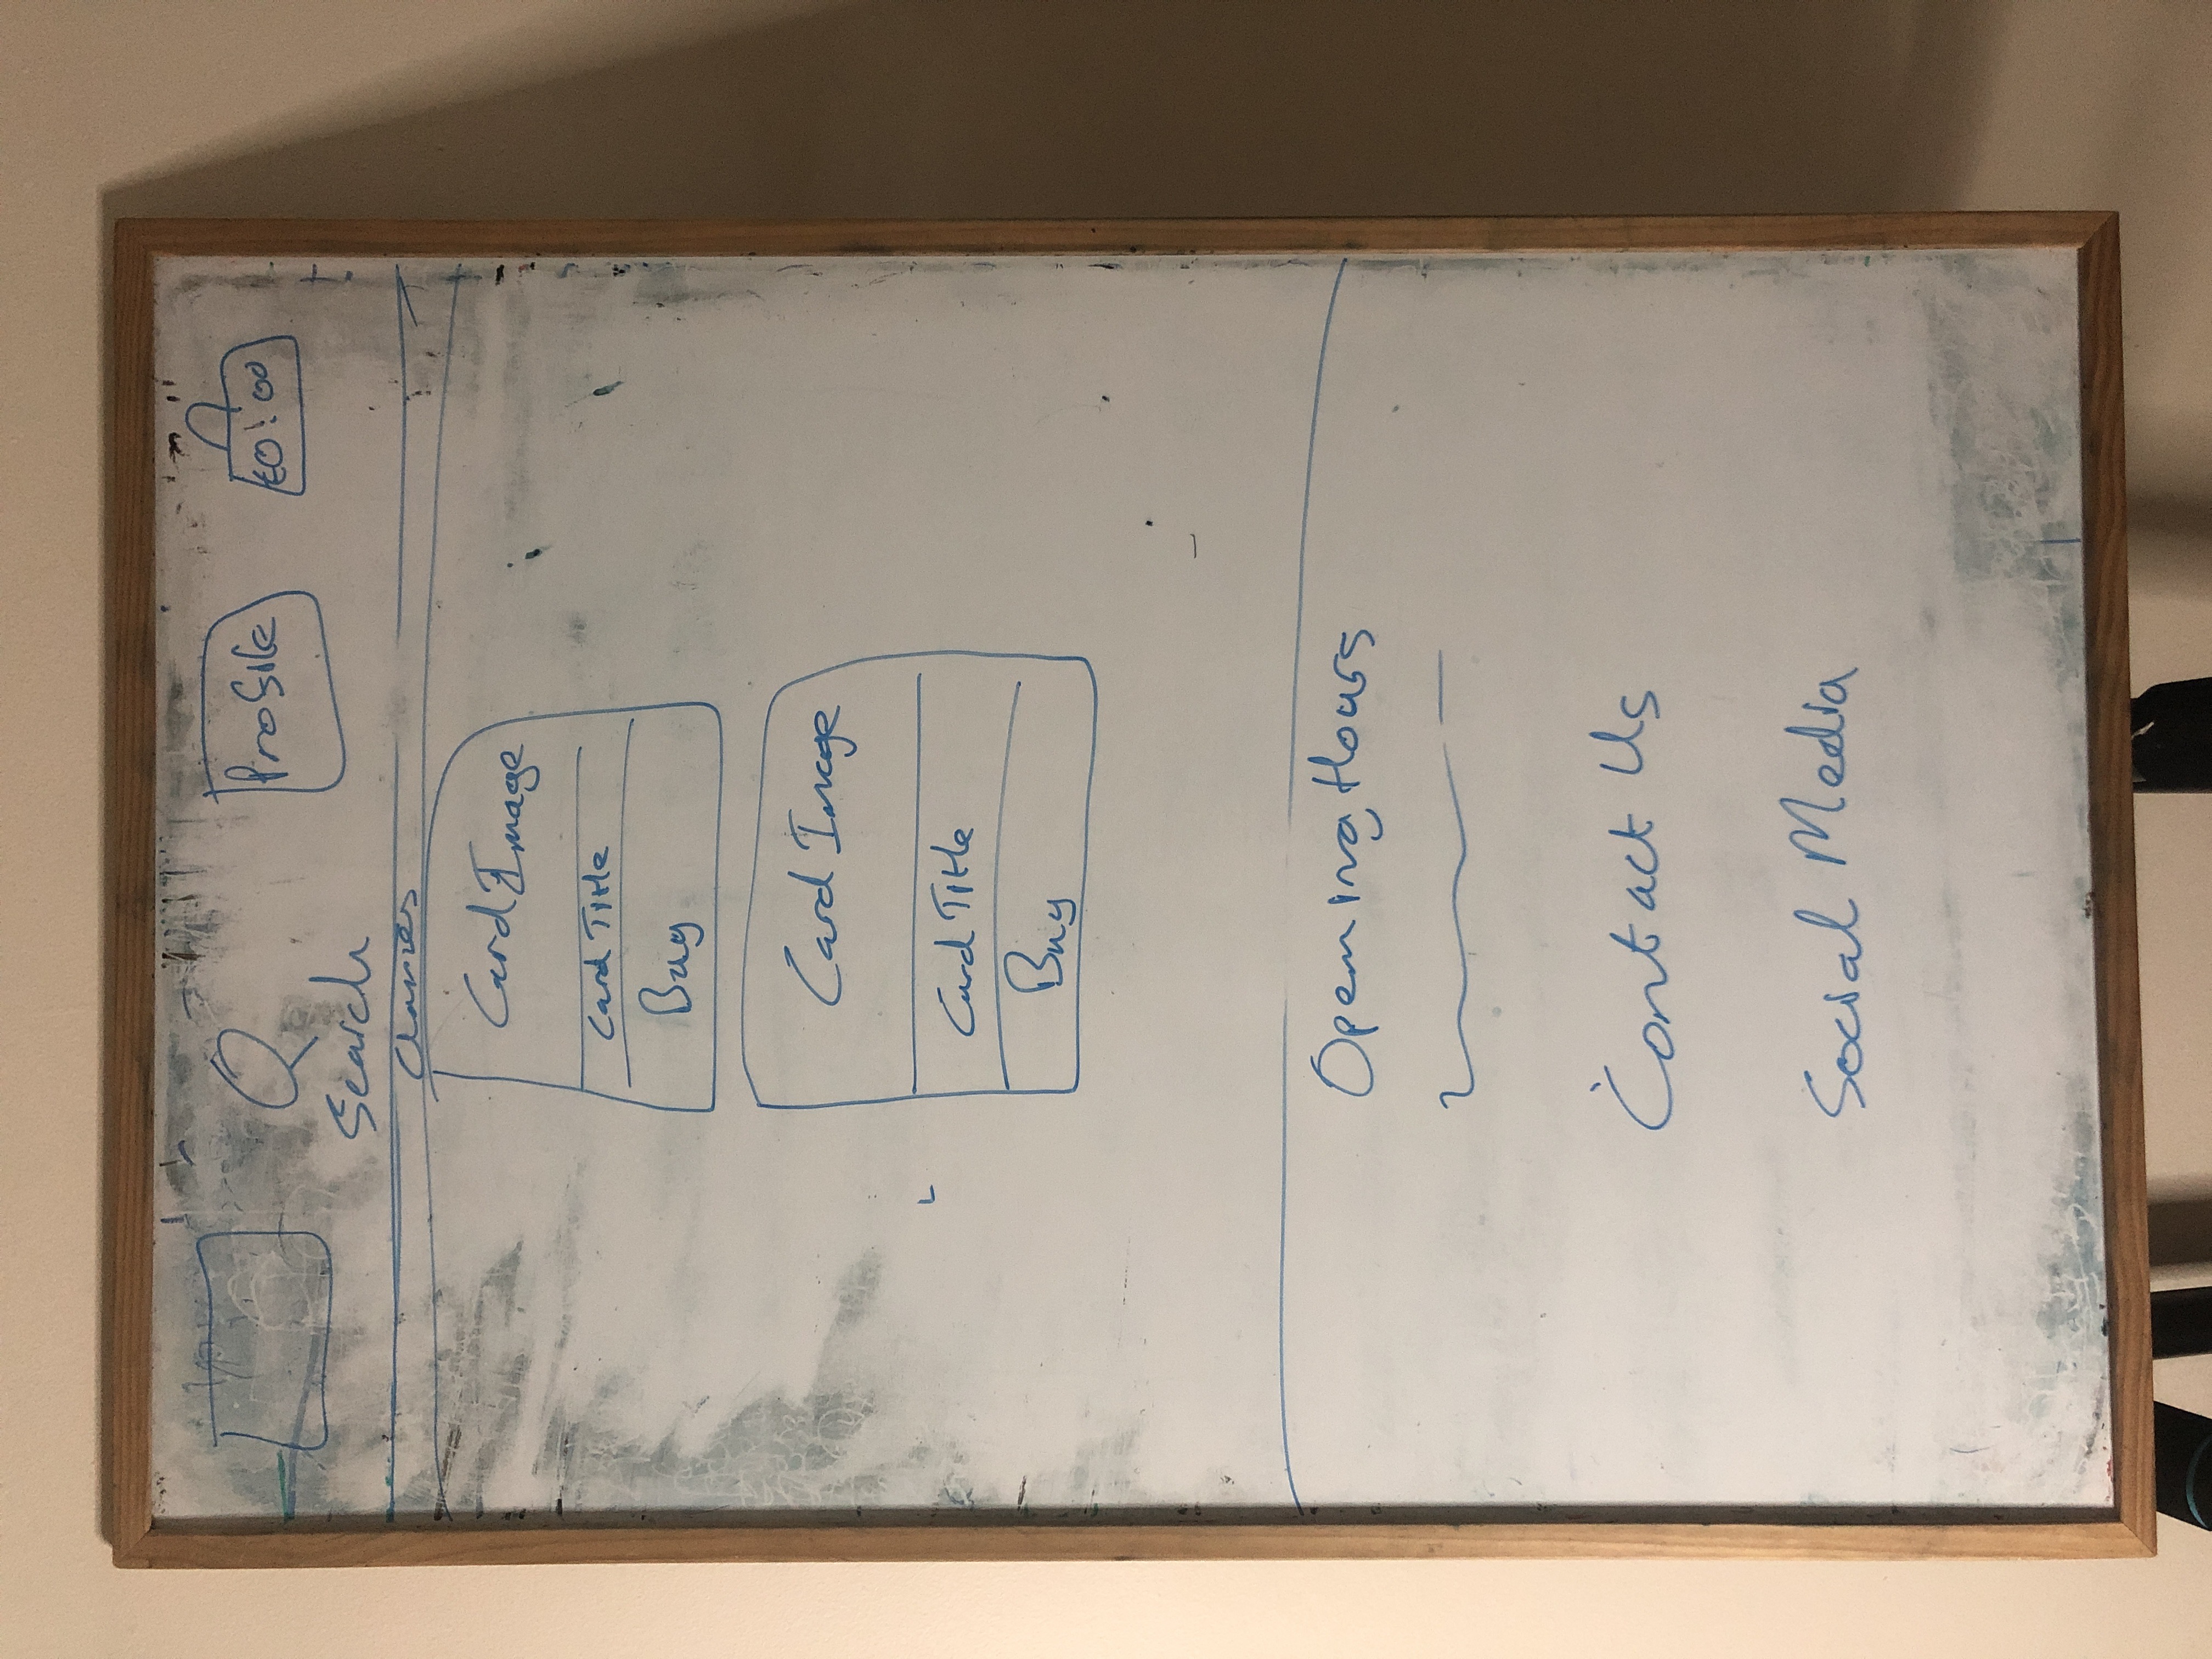 Profile
£0.00
Search
Classes
Card Image
Card Title
Buy
Card Image
Card Title
Buy
Opening Hours
Contact Us
Social Media